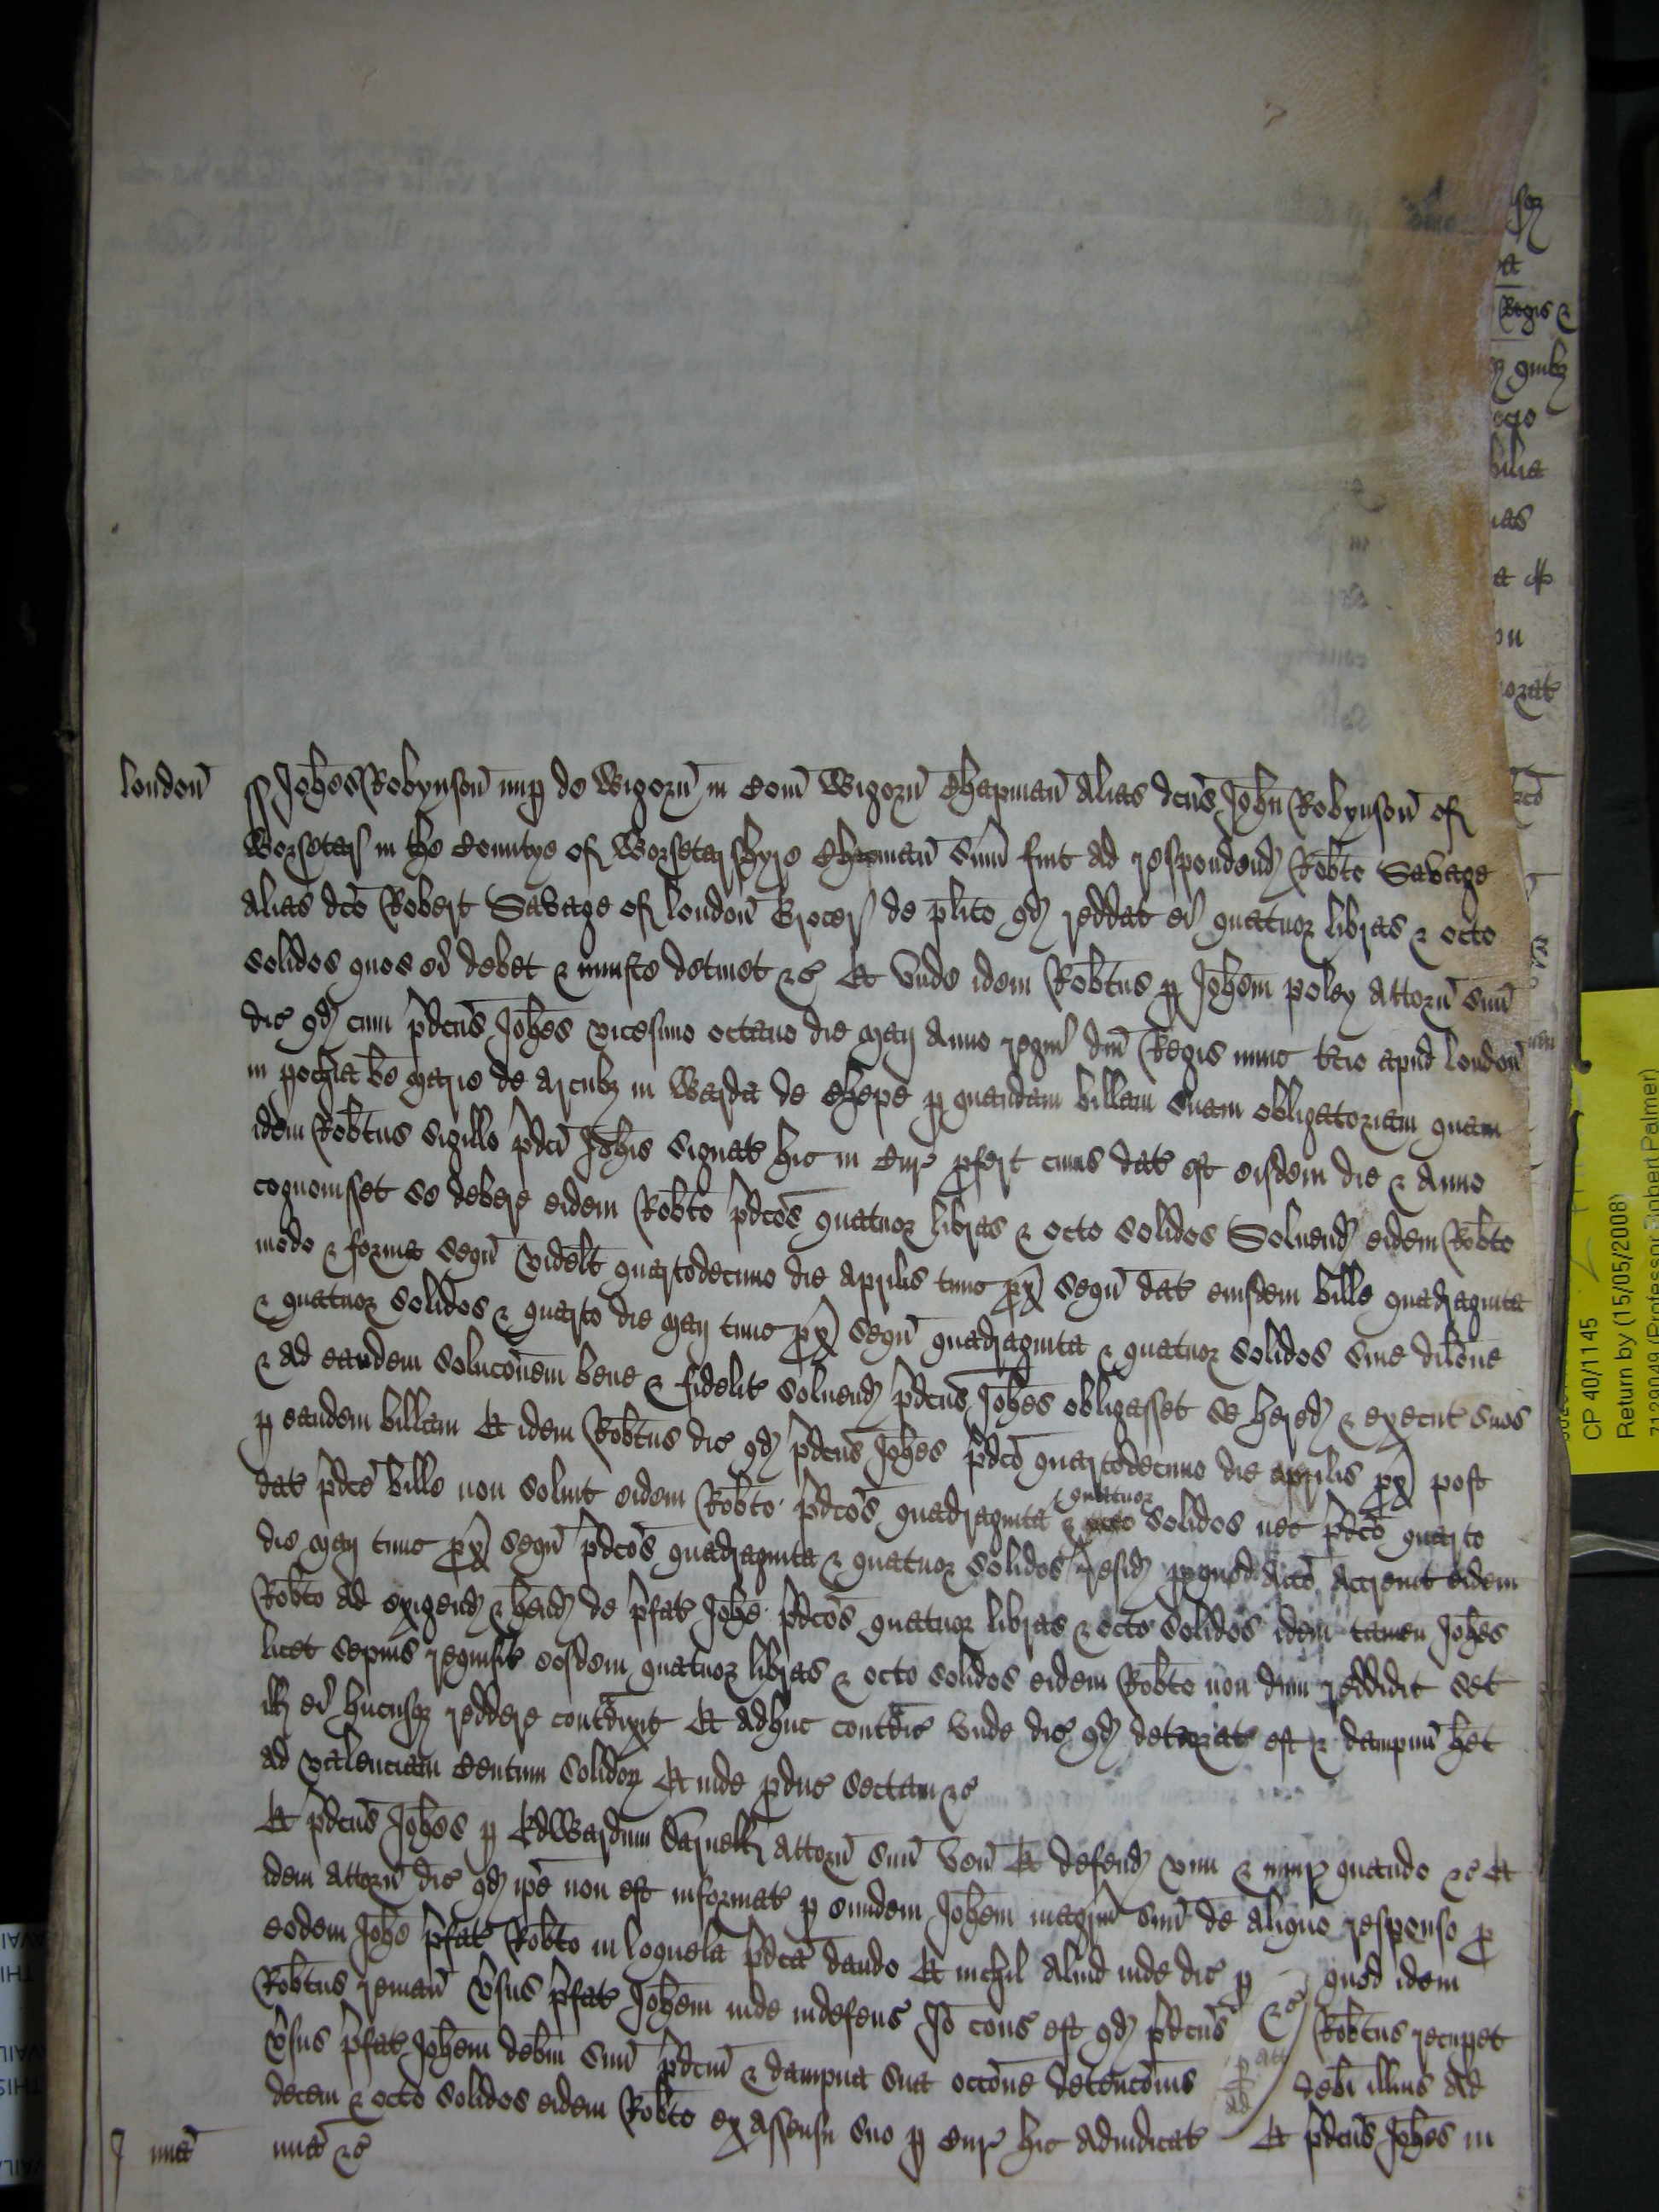 london̄ ss Joh̄es Robynson̄ nup de Wigorn̄ in Com̄ Wigorn̄ Chapman̄ alias dc̄us John Robynson̄ of
Worsetʳ in the Countye of Worsetʳshyre Chapman̄ sum̄ fuit ad respondend Rob̄to Savage
alias dc̄o Robert Savage of london̄ Grocer de pl̄ito qd reddat ei quatuor libras & octo
solidos quos ei debet & iniuste detinet &c Et unde idem Rob̄tus p Joh̄em poley attorn̄ suū
dic qd cum p̄dc̄us Joh̄es vicesimo octauo die maij anno regni dn̄i Regis nunc t̄cio apud london̄
in poch̄ia b̄e marie de arcub in Warda de Chepe p quandam billam suam obligatoriam quam
idem Rob̄tus sigillo p̄dc̄i Joh̄is signat hic in Cur pfert cuius dat est eisdem die & anno
cognouisset se debere eidem Rob̄to p̄dc̄os quatuor libras & octo solidos Soluend eidem Rob̄to
modo & forma sequn̄ videl̄t quartodecimo die aprilis tunc px̄ sequn̄ dat eiusdem bille quadraginta
& quatuor solidos & quarto die maij tunc px̄ sequn̄ quadraginta & quatuor solidos sine dil̄one
& ad eandem soluc̄onem bene & fidelit soluend p̄dc̄us Joh̄es obligasset se hered & execut suos
p eandem billam Et idem Rob̄tus dic qd p̄dc̄us Joh̄es p̄dc̄o quartodecimo die aprilis px̄ post
dat p̄dc̄e bille non soluit eidem Rob̄to p̄dc̄os quadraginta & quatuor solidos nec p̄dc̄o quarto
die maij tunc px̄ sequn̄ p̄dc̄os quadraginta & quatuor solidos resid p quod acc̄o accreuit eidem
Rob̄to ad exigend & h̄end de p̄fat Joh̄e p̄dc̄os quatuor libras & octo solidos idem tamen Joh̄es
licet sepius requisit eosdem quatuor libras & octo solidos eidem Rob̄to non dum reddidit set
ill ei hucusq reddere contdixit Et adhuc contdic unde dic qd det̄iorat est & dampnū h̄et
ad valenciam Centum solidor Et inde pduc sectam &c
Et p̄dc̄us Joh̄es p Edwardum Darnell attorn̄ suū ven̄ Et defend vim & iniur quando &c Et
idem attorn̄ dic qd ip̄e non est informat p eundem Joh̄em magr̄m suū de aliquo responso p
eodem Joh̄e p̄fat Rob̄to in loquela p̄dc̄a dando Et nichil aliud inde dic p quod idem
Rob̄tus reman̄ v̄sus p̄fat Joh̄em inde indefens Iō cons est qd p̄dc̄us Rob̄tus recupet
v̄sus p̄fat Joh̄em deb̄m suū p̄dc̄m & dampna sua occ̄one detenc̄onis deb̄i illius ad
decem & octo solidos eidem Rob̄to ex assensu suo p Cur hic adiudicat Et p̄dc̄us Joh̄es in
mīa mīa &c
CP 40/1145
Return by (15/05/2008)
(Professor Robert Palmer)